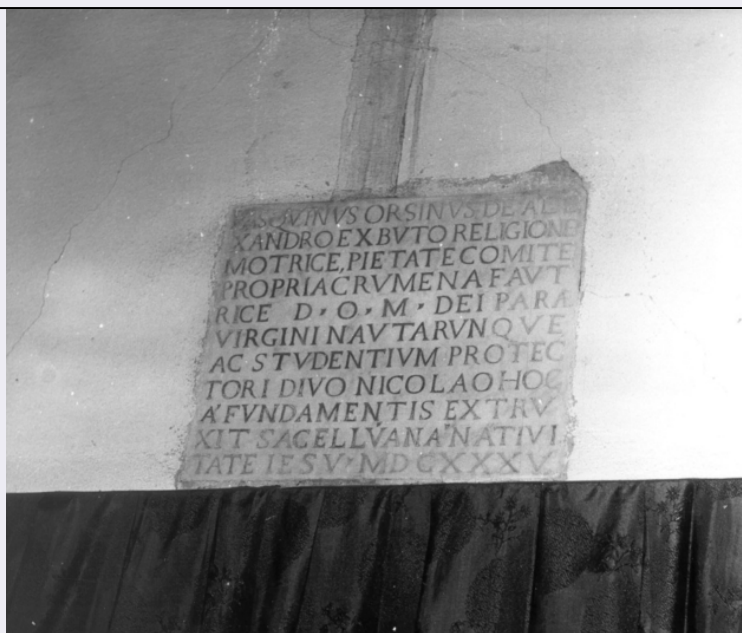 ORSINVS DE AL
XANDRO EX BVTO RELIGIONE
MOTRICE, PIETATE COMITE
PROPRIA CRVMENA FAVT
RICE D · O · M · DEI PARÆ
VIRGINI NAVTARVNQVE
AC STVDENTIVM PROTEC
TORI DIVO NICOLAO HOC
A' FVNDAMENTIS EXTRV
XIT SACELLV́ANA' NATIVI
TATE IESV · MDCXXXV